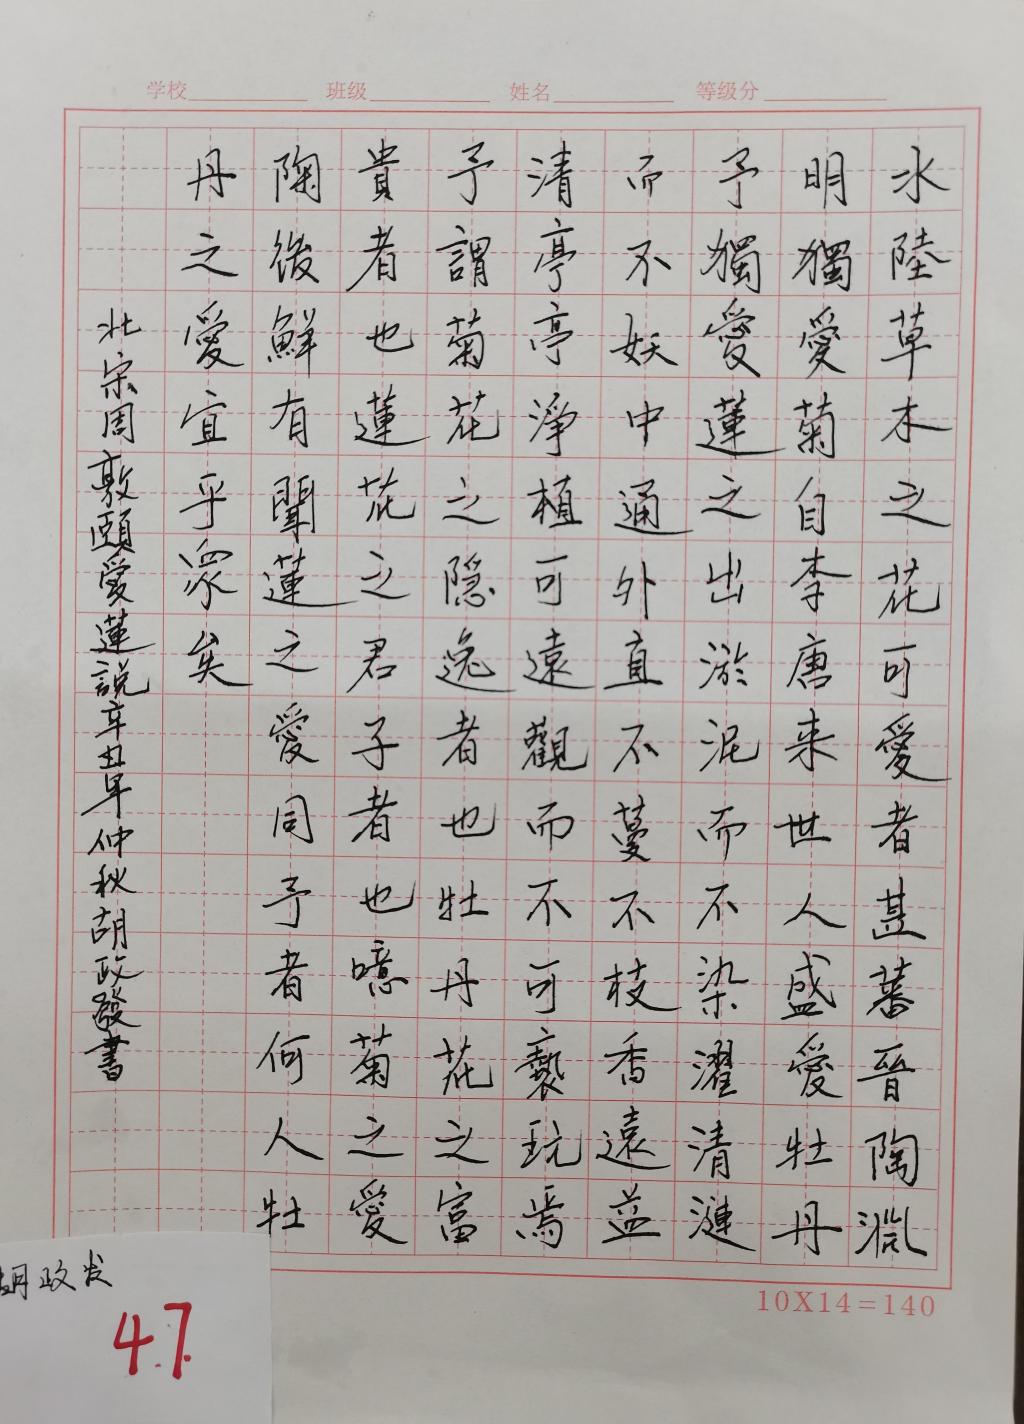 学校 班级 姓名 等级分
水陸草木之花可愛者甚蕃晉陶淵
明獨愛菊自李唐来世人盛愛牡丹
予獨愛蓮之出淤泥而不染濯清漣
而不妖中通外直不蔓不枝香遠益
清亭亭淨植可遠觀而不可褻玩焉
予謂菊花之隐逸者也牡丹花之富
貴者也蓮花之君子者也噫菊之愛
陶後鮮有聞蓮之愛同予者何人牡
丹之愛宜乎眾矣
北宋周敦頤愛蓮説辛丑年仲秋胡政發書
10X14=140
胡政发
4.7.